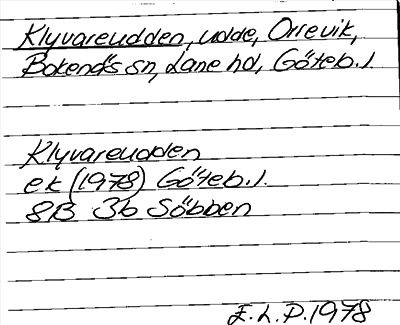 Klyvareudden, udde, Orrevik,
Bokenäs sn, Lane hd, Göteb.l.
Klyvareudden
ek (1978) Göteb.l.
8B 3b Söbben
E.L.P.1978